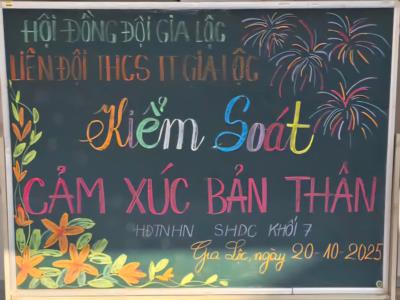 HỘI ĐỒNG ĐỘI GIA LỘC
LIÊN ĐỘI THCS TT GIA LỘC
Kiểm Soát
CẢM XÚC BẢN THÂN
HĐTNHN SHDC KHỐI 7
Gia Lộc, ngày 20-10-2025